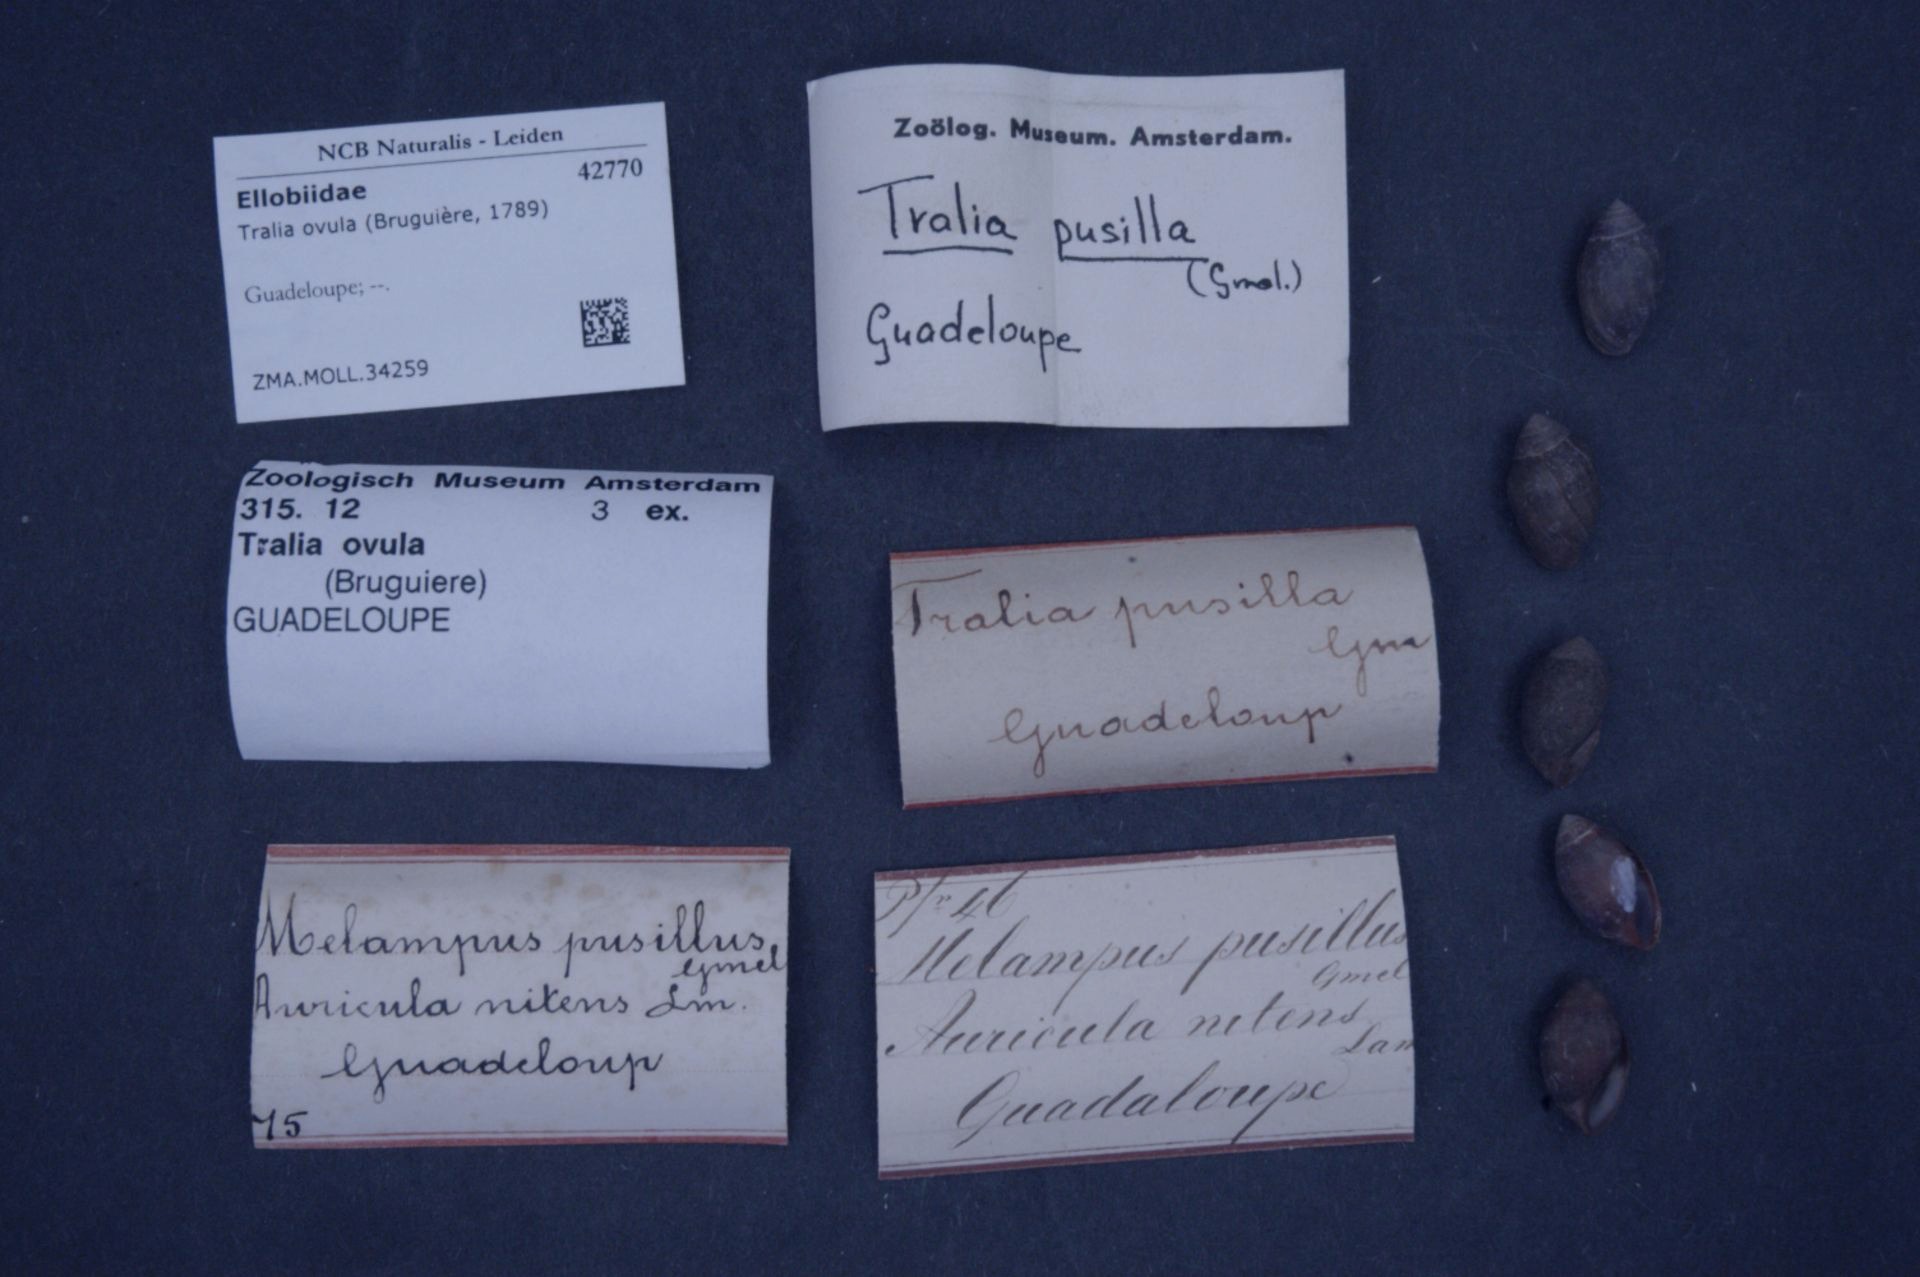 NCB Naturalis - Leiden
42770
Ellobiidae
Tralia ovula (Bruguière, 1789)
Guadeloupe; --.
ZMA.MOLL.34259
Zoölog. Museum. Amsterdam.
Tralia pusilla
(Gmel.)
Guadeloupe
Zoologisch Museum Amsterdam
315. 12 3 ex.
Tralia ovula
(Bruguiere)
GUADELOUPE
Tralia pusilla
Gm
Guadeloup
Melampus pusillus,
Gmel
Auricula nitens Lm.
Guadeloup
75
46
Melampus pusillus
Gmel
Auricula nitens
Lam
Guadaloupe